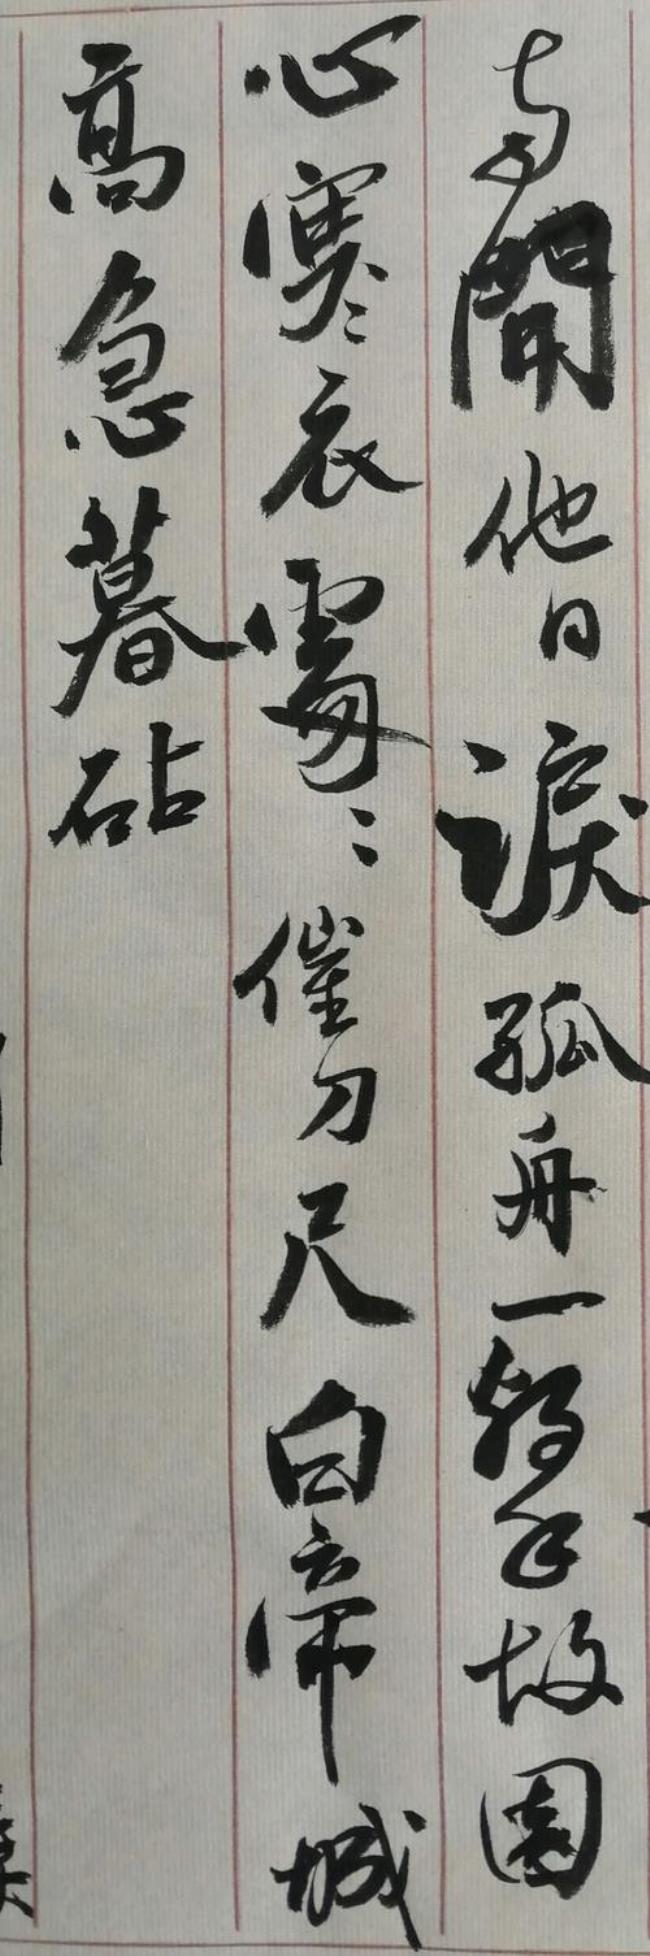 兩開他日淚孤舟一繫故園
心寒衣處々催刀尺白帝城
高急暮砧